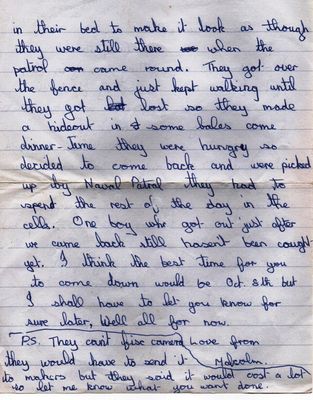 in their bed to make it look as though
they were still there when the
patrol came round. They got over
the fence and just kept walking until
they got lost so they made
a hideout in some bales come
dinner-time they were hungry so
decided to come back and were picked
up by Naval Patrol they had to
spend the rest of the day in the
cells. One boy who got out just after
we came back still hasent been caught
yet. I think the best time for you
to come down would be Oct. 8th but
I shall have to let you know for
sure later, Well all for now.
P.S. They cant fisc camera Love from
they would have to send it Malcolm.
to makers but they said it would cost a lot
so let me know what you want done.